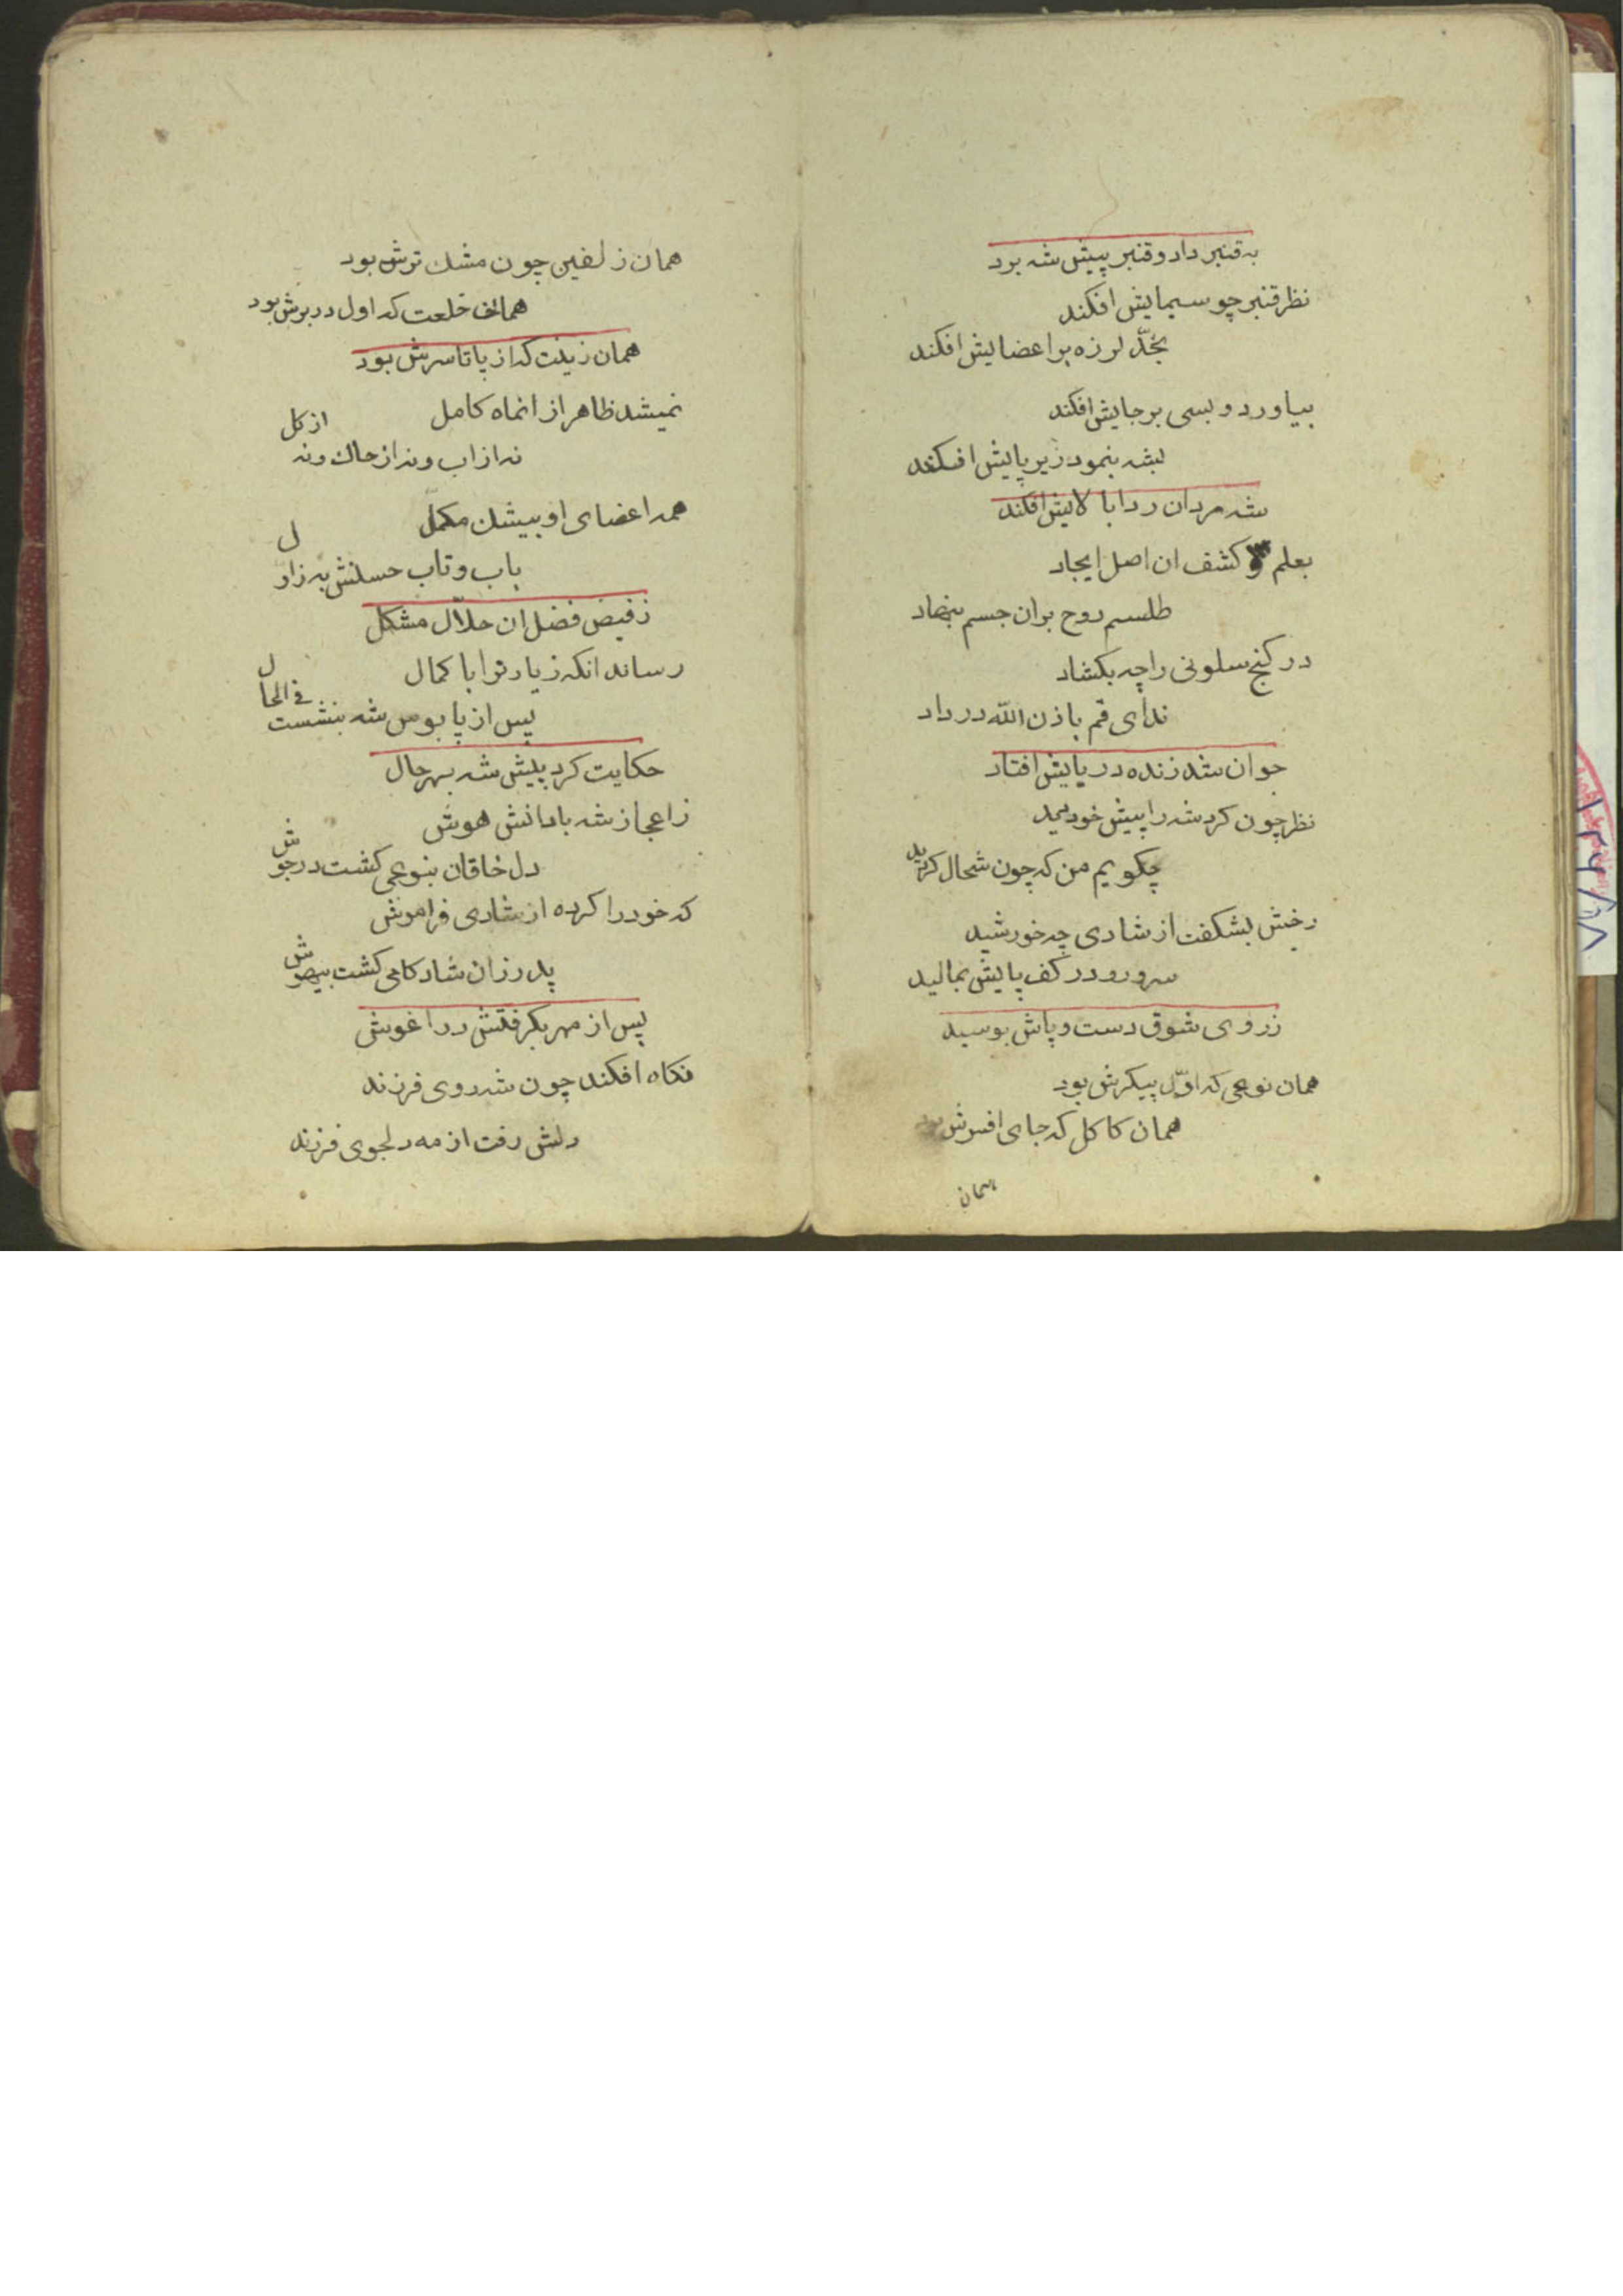 به قنبر داد و قنبر پیش شه برد
نظر قنبر چو سیمایش افکند
بخدّ لرزه بر اعضایش افکند
بیاورد و بسی بر جایش افکند
بشه بنمود زیر پایش افکند
شه مردان ردا بالایش افکند
بعلم و کشف ان اصل ایجاد
طلسم روح بران جسم بنهاد
در کنج سلونی را چه بکشاد
ندای قم باذن الله در داد
جوان شد زنده در پایش افتاد
نظر چون کرد شه را پیش خود دید
چکویم من که چون شحال کردید
رخش بشکفت از شادی چه خورشید
سر و رو در کف پایش بمالید
ز روی شوق دست و پاش بوسید
همان نوعی که اوّل پیکرش بود
همان کاکل که جای افسرش بود
همان
همان زلفین چون مشک ترش بود
همان خلعت که اول در برش بود
همان زینت که از پا تا سرش بود
نمیشد ظاهر از انماه کامل
نه از اب و نه از خاک و نه از کل
همه اعضای او بیشک مکمل
باب و تاب حسنش به ز اول
ز فیض فضل ان حلاّل مشکل
رساند انکه زیارترا با کمال
پس از پابوس شه بنشست فی الحال
حکایت کرد پیش شه بهر حال
ز اعجاز شه با دانش هوش
دل خاقان بنوعی کشت در جوش
که خود را کرده از شادی فراموش
پدر زان شاد کامی کشت بیهوش
پس از مهر بکرفتش در اغوش
نکاه افکند چون شه روی فرزند
دلش رفت از مه دلجوی فرزند